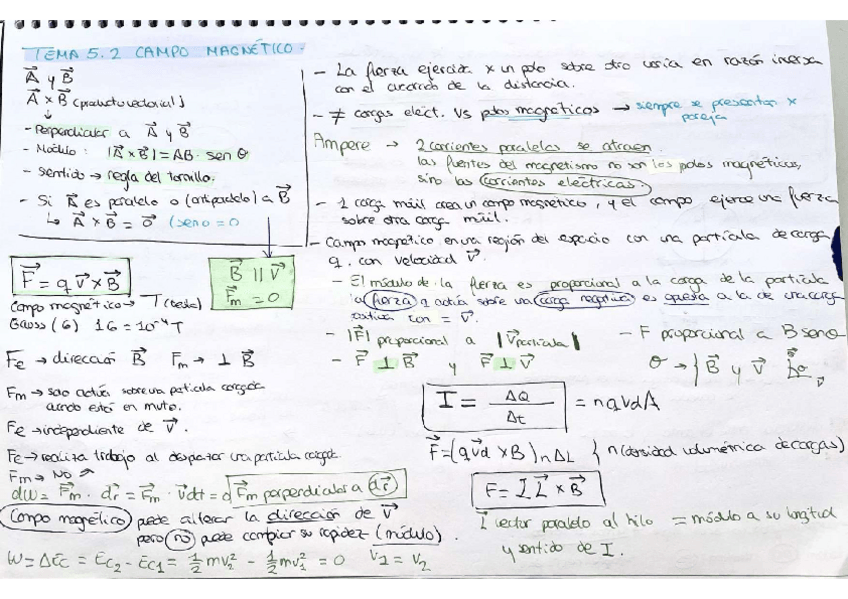 TEMA 5.2 CAMPO MAGNÉTICO.
A⃗ y B⃗
A⃗ x B⃗ (producto vectorial)
↓
- Perpendicular a A⃗ y B⃗
- Módulo: |A⃗ x B⃗| = AB · sen θ
- Sentido → regla del tornillo.
- Si A⃗ es paralelo o (antiparalelo) a B⃗
↳ A⃗ x B⃗ = 0⃗ (seno = 0
F⃗ = q v⃗ x B⃗
B⃗ || v⃗
F⃗m = 0
Campo magnético → T (tesla)
Gauss (G) 1G = 10⁻⁴ T
Fe → dirección B⃗ Fm → ⊥ B⃗
Fm → solo actúa sobre una partícula cargada
cuando está en mvto.
Fe → independiente de v⃗.
Fe → realiza trabajo al desplazar una partícula cargada
Fm → NO
dw = F⃗m · dr⃗ = F⃗m · v⃗dt = 0 F⃗m perpendicular a dr⃗
Campo magético puede alterar la dirección de v⃗
pero no puede cambiar su rapidez (módulo).
W = ΔEc = Ec₂ - Ec₁ = 1/2 mv₂² - 1/2 mv₁² = 0 v₁ = v₂
- La fuerza ejercida x un polo sobre otro varia en razón inversa
con el cuadrado de la distancia.
- ≠ cargas eléct. vs polos magnéticos → siempre se presentan x
pareja
Ampere → 2 corrientes paralelas se atraen.
las fuentes del magnetismo no son los polos magnéticos,
sino las corrientes eléctricas.
- 1 carga móvil crea un campo magnético, y el campo ejerce una fuerza
sobre otra carga móvil.
- Campo magnético en una región del espacio con una partícula de carga
q. con velocidad v⃗.
- El módulo de la fuerza es proporcional a la carga de la partícula
la fuerza q actúa sobre una carga negativa es opuesta a la de una carga
positiva con = v⃗.
- |F⃗| proporcional a |v⃗partícula| - F proporcional a B senθ
- F⃗ ⊥ B⃗ y F⃗ ⊥ v⃗ θ → { B⃗ y v⃗ B⃗ θ v⃗
I = ΔQ/Δt = nqvdA
F⃗ = (q v⃗d x B⃗) n ΔL { n (densidad volumétrica de cargas)
F = I L⃗ x B⃗
L⃗ vector paralelo al hilo = módulo a su longitud
y sentido de I.